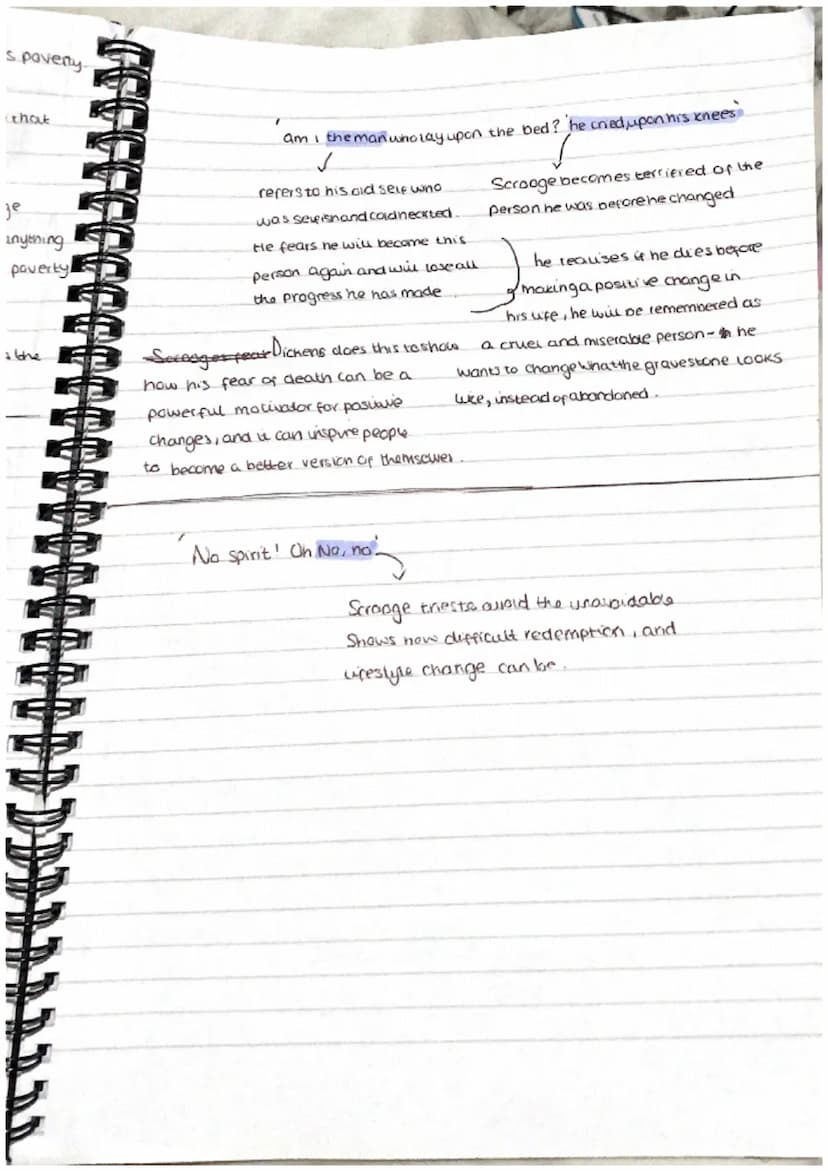 s poverty.
that
ge
anything
poverty
s the
'am i the man who lay upon the bed?' 'he cried, upon his knees'
refers to his old self who
was selfish and coldhearted.
He fears he will become this
person again and will lose all
the progress he has made
Scrooge becomes terrified of the
person he was before he changed
he realises if he dies before
making a positive change in
his life, he will be remembered as
a cruel and miserable person - he
wants to change what the gravestone looks
like, instead of abandoned.
Scrooges fear Dickens does this to show
how his fear of death can be a
powerful motivator for positive
changes, and it can inspire people
to become a better version of themselves.
'No spirit! Oh No, no'
Scrooge tries to avoid the unavoidable
Shows how difficult redemption, and
lifestyle change can be.